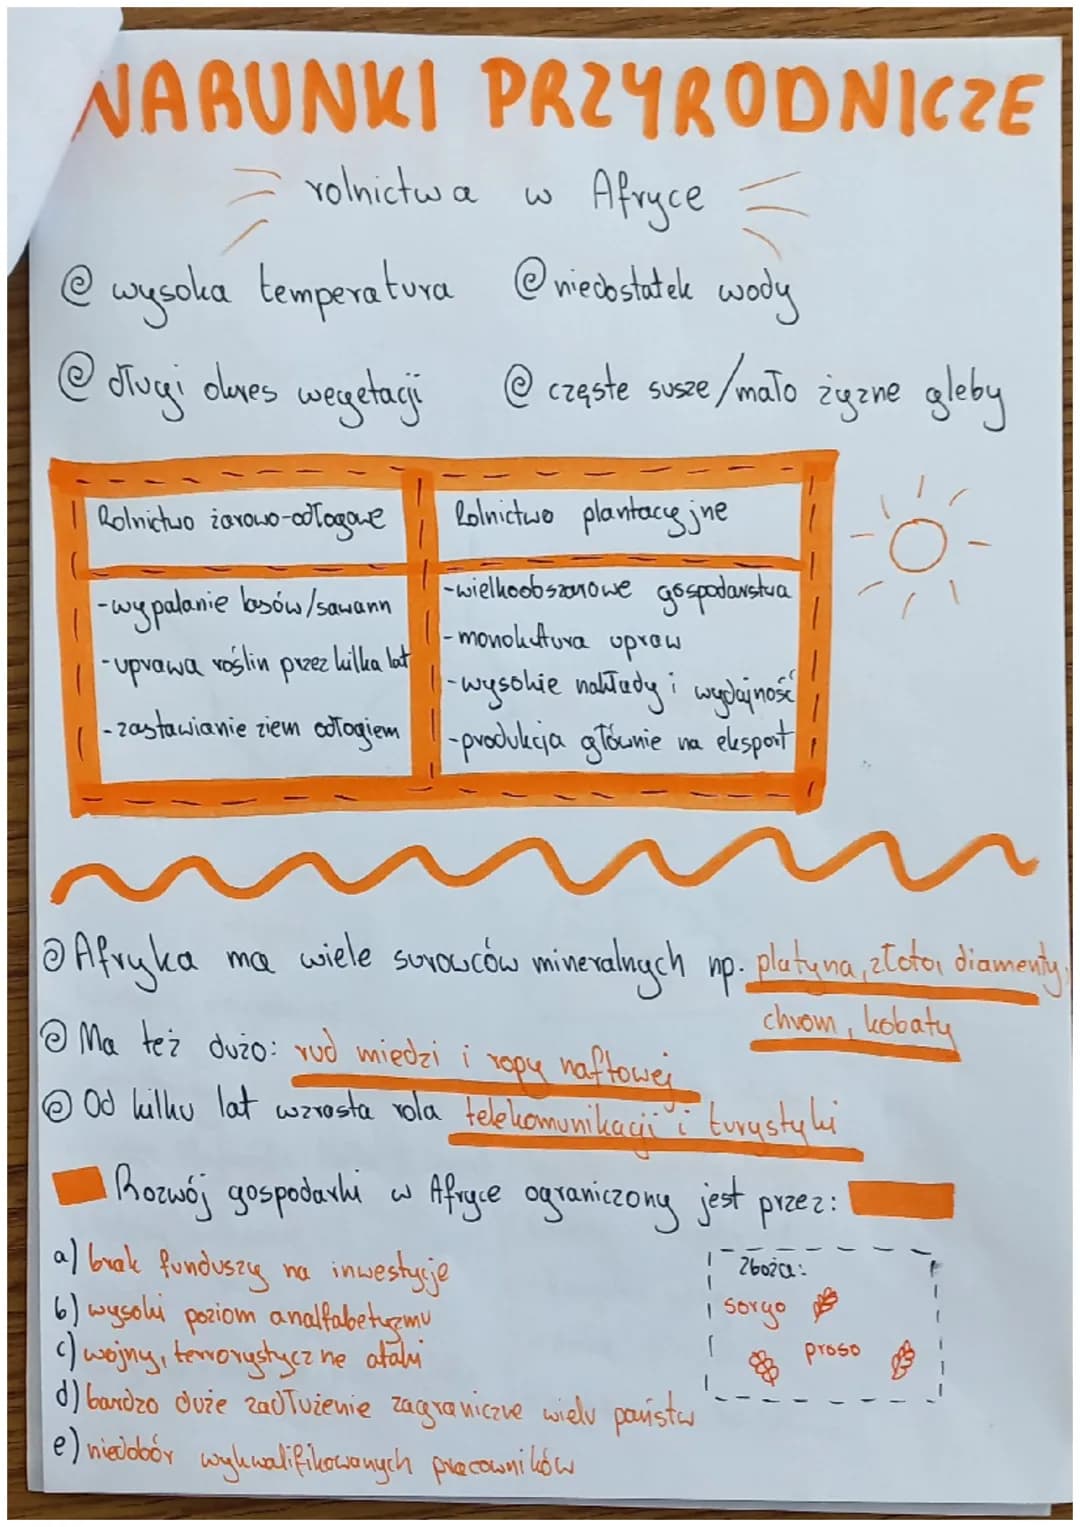 WARUNKI PRZYRODNICZE
rolnictwa w Afryce
@ wysoka temperatura @ niedostatek wody
@ długi okres wegetacji @ częste susze/mało żyzne gleby
Rolnictwo żarowo-odłogowe
-wypalanie lasów/sawann
-uprawa roślin przez kilka lat
-zastawianie ziem odłogiem
Rolnictwo plantacyjne
-wielkoobszarowe gospodarstwa
-monokultura upraw
-wysokie nakłady i wydajność
-produkcja głównie na eksport
@ Afryka ma wiele surowców mineralnych np. platyna, złoto, diamenty,
chrom, kobalty
@ Ma też dużo: rud miedzi i ropy naftowej
@ Od kilku lat wzrasta rola telekomunikacji i turystyki
Rozwój gospodarki w Afryce ograniczony jest przez:
a) brak funduszy na inwestycje
b) wysoki poziom analfabetyzmu
c) wojny, terrorystyczne ataki
d) bardzo duże zadłużenie zagraniczne wielu państw
e) niedobór wykwalifikowanych pracowników
Zboża:
sorgo
proso